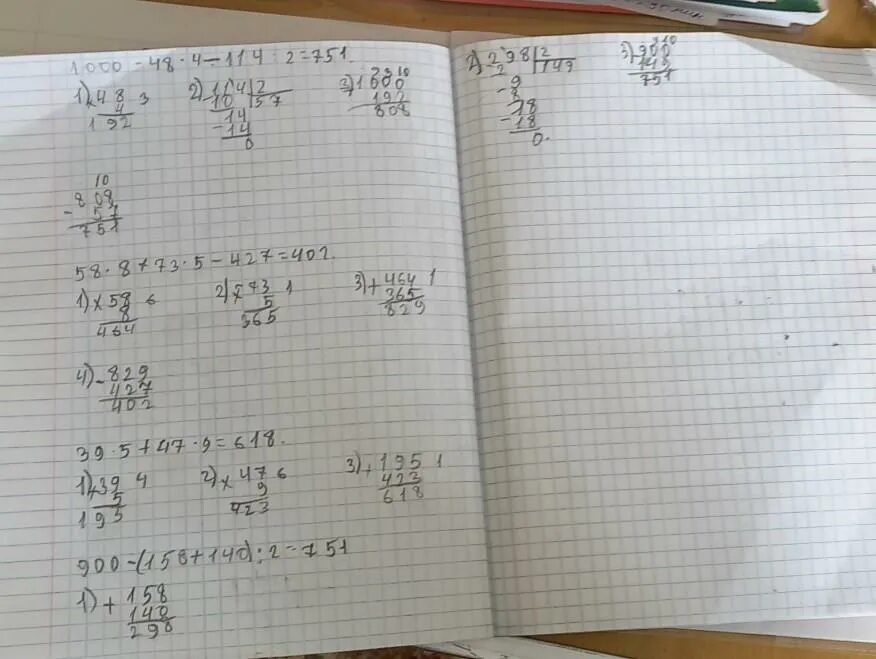 1000 - 48 · 4 - 114 : 2 = 751.
1) × 48 3
4
192
2) 114 2
10 57
14
- 14
0
3) 1000
192
808
10
- 808
57
751
58 · 8 + 73 · 5 - 427 = 402.
1) × 58 6
8
464
2) × 73 1
5
365
3) + 464 1
365
829
4) - 829
427
402
39 · 5 + 47 · 9 = 618.
1) × 39 4
5
195
2) × 47 6
9
423
3) + 195 1
423
618
900 - (158 + 140) : 2 = 751
1) + 158
140
298
2) 298 2
- 2 149
9
- 8
18
- 18
0.
3) 900
149
751